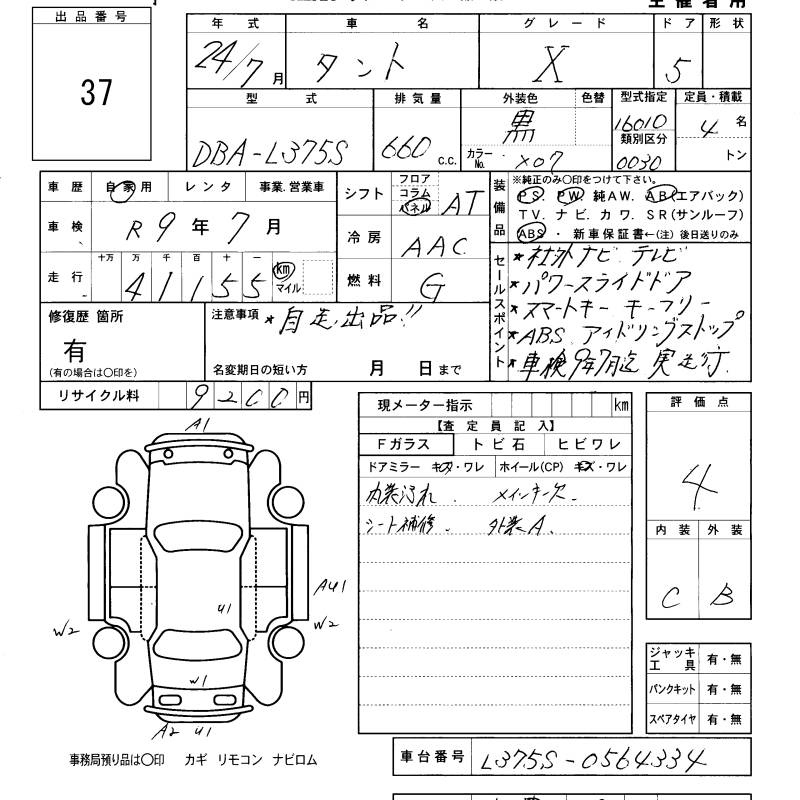 出品番号
37
年式 車名 グレード ドア 形状
24/7月 タント X 5
型式 排気量 外装色 色替 型式指定 定員・積載
DBA-L375S 660 c.c. 黒 16010 4 名
カラーNo. X07 類別区分 0030 トン
車歴 自家用 レンタ 事業.営業車
車検 R9年7月
走行 十万 万 千 百 十 一
41155 km マイル
シフト フロア コラム パネル AT
冷房 AAC
燃料 G
装備品
※純正のみ〇印をつけて下さい。
PS. PW. 純AW. AB(エアバック)
TV. ナビ. カワ. SR(サンルーフ)
ABS ・ 新車保証書←(注) 後日送りのみ
セールスポイント
*社外ナビ テレビ
*パワースライドドア
*スマートキー キーフリー
*ABS アイドリングストップ
*車検9年7月迄 実走行.
修復歴 箇所
有
(有の場合は〇印を)
注意事項 *自走出品!!
名変期日の短い方 月 日まで
リサイクル料 9200円
現メーター指示 km
【査定員記入】
Fガラス トビ石 ヒビワレ
ドアミラー キズ・ワレ ホイール(CP) キズ・ワレ
内装汚れ. メインキー欠.
シート補修. 外装A.
評価点
4
内装 外装
C B
ジャッキ工具 有・無
パンクキット 有・無
スペアタイヤ 有・無
A1
AU1
U1
W2
W2
W1
A2 U1
事務局預り品は〇印 カギ リモコン ナビロム
車台番号 L375S-0564334